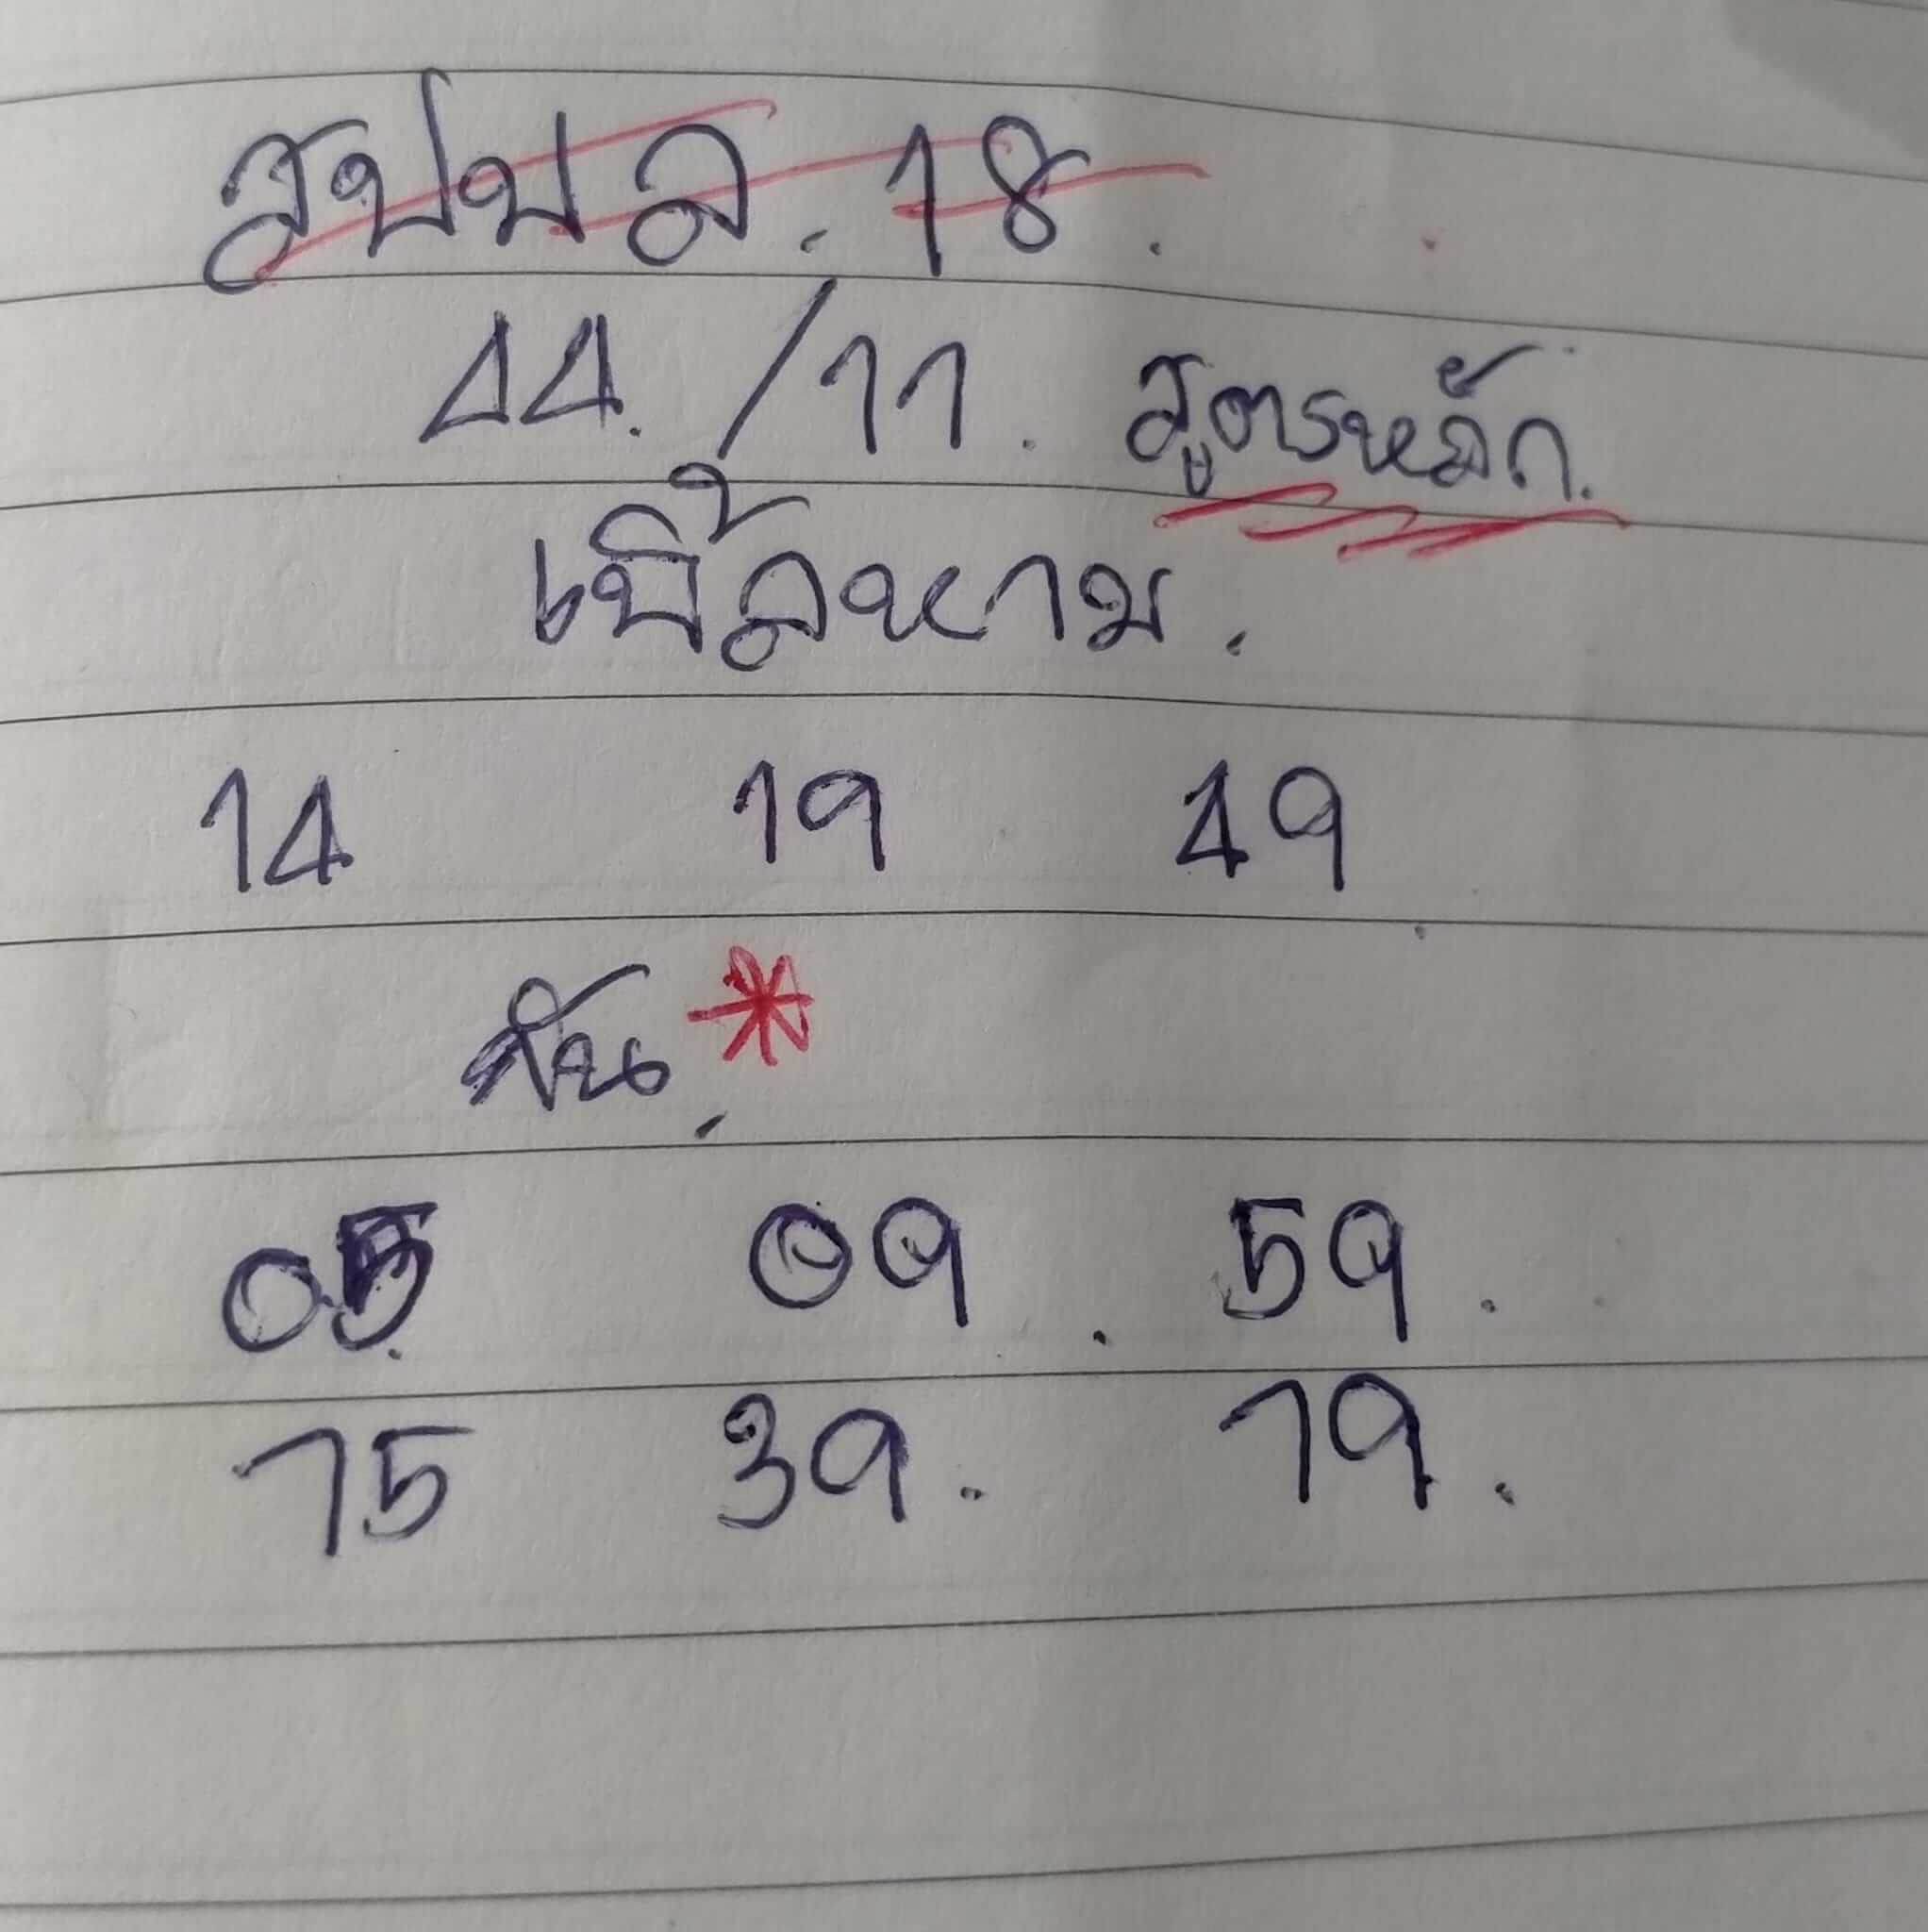 สปปล. 18.
44. / 11. สูตรหลัก.
เบิ้ลหาม.
14 19 49
กัน.*
05 09 . 59 .
75 39 . 79 .